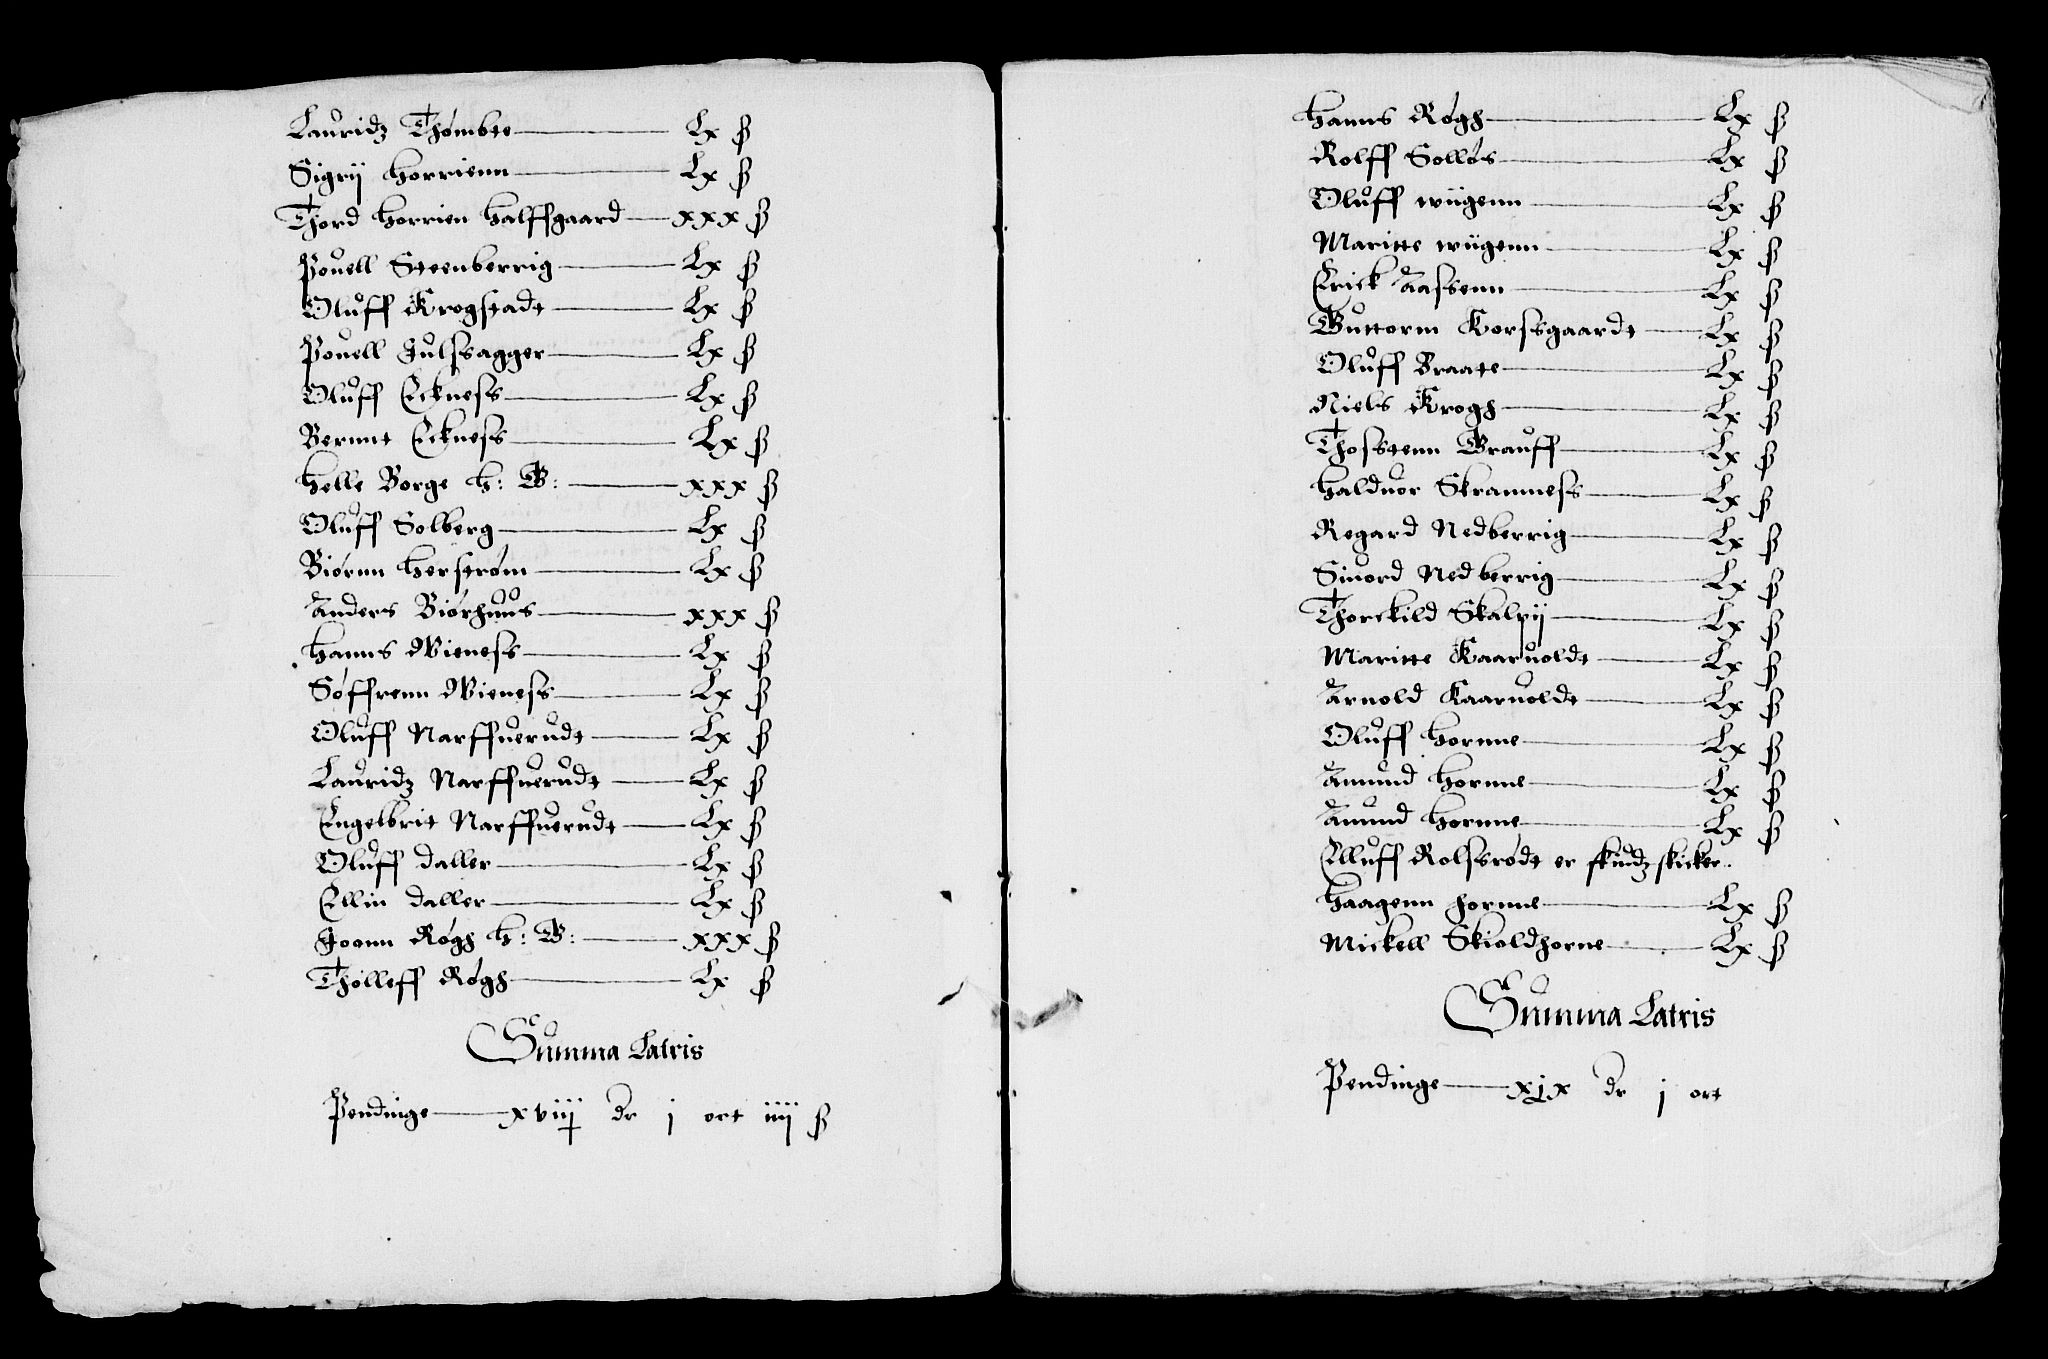 Lauridz Thombte Lx ß
Sigrij Horrienn Lx ß
Thord Horrien Halffgaard xxx ß
Pouell Steenberrig Lx ß
Oluff Krogstadt Lx ß
Pouell Julssagger Lx ß
Oluff Eckness Lx ß
Bernnt Eckness Lx ß
Helle Borge H: G: xxx ß
Oluff Solberg Lx ß
Biørnn Herstrøm Lx ß
Anders Biørhuus xxx ß
Hanns Wieness Lx ß
Søffrenn Wieness Lx ß
Oluff Narffuerudt Lx ß
Lauridz Narffuerudt Lx ß
Engelbrit Narffuerudt Lx ß
Oluff Daller Lx ß
Ellin Daller Lx ß
Joenn Røgh H: G: xxx ß
Tholleff Røgh Lx ß
Summa Latris
Pendinge xviij dr j ort iiij ß
Hanns Røgh Lx ß
Rolff Solløs Lx ß
Oluff wiigenn Lx ß
Maritte wiigenn Lx ß
Erick Aassenn Lx ß
Guttorm Korssgaardt Lx ß
Oluff Braate Lx ß
Niels Krogh Lx ß
Thosstenn Grauff Lx ß
Halduor Skramness Lx ß
Regard Nedberrig Lx ß
Siuord Nedberrig Lx ß
Thorckild Skalpij Lx ß
Maritte Kaaruoldt Lx ß
Arnold Kaaruoldt Lx ß
Oluff Hornne Lx ß
Amund Hornne Lx ß
Amund Hornne Lx ß
Elluff Rolssrødt er skudz skicker
Haagenn Hornne Lx ß
Mickell Skioldhorne Lx ß
Summa Latris
Pendinge xix dr j ort